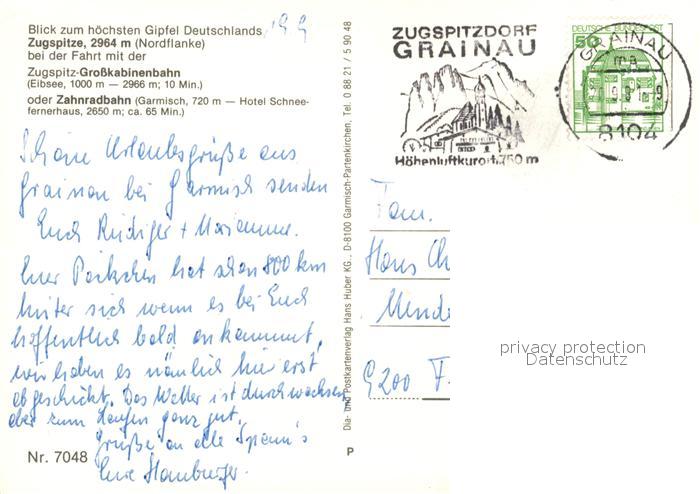 Blick zum höchsten Gipfel Deutschlands
Zugspitze, 2964 m (Nordflanke)
bei der Fahrt mit der
Zugspitz-Großkabinenbahn
(Eibsee, 1000 m — 2966 m; 10 Min.)
oder Zahnradbahn (Garmisch, 720 m — Hotel Schnee-
fernerhaus, 2650 m; ca. 65 Min.)
Schöne Urlaubsgrüße aus
Grainau bei Garmisch senden
Euch Rüdiger + Marianne.
Euer Päckchen hat schon 800 km
hinter sich wenn es bei Euch
hoffentlich bald ankommt,
wir haben es nämlich hier erst
abgeschickt. Das Wetter ist durchwachsen
aber zum Laufen ganz gut.
Grüße an alle
Eure Hamburger.
Nr. 7048
Dia- und Postkartenverlag Hans Huber KG., D-8100 Garmisch-Partenkirchen, Tel. 0 88 21 / 5 90 48
P
ZUGSPITZDORF
GRAINAU
Höhenluftkurort 750 m
DEUTSCHE BUNDESPOST
50
GRAINAU
8104
Fam.
Hans Ch
9200 F
privacy protection
Datenschutz